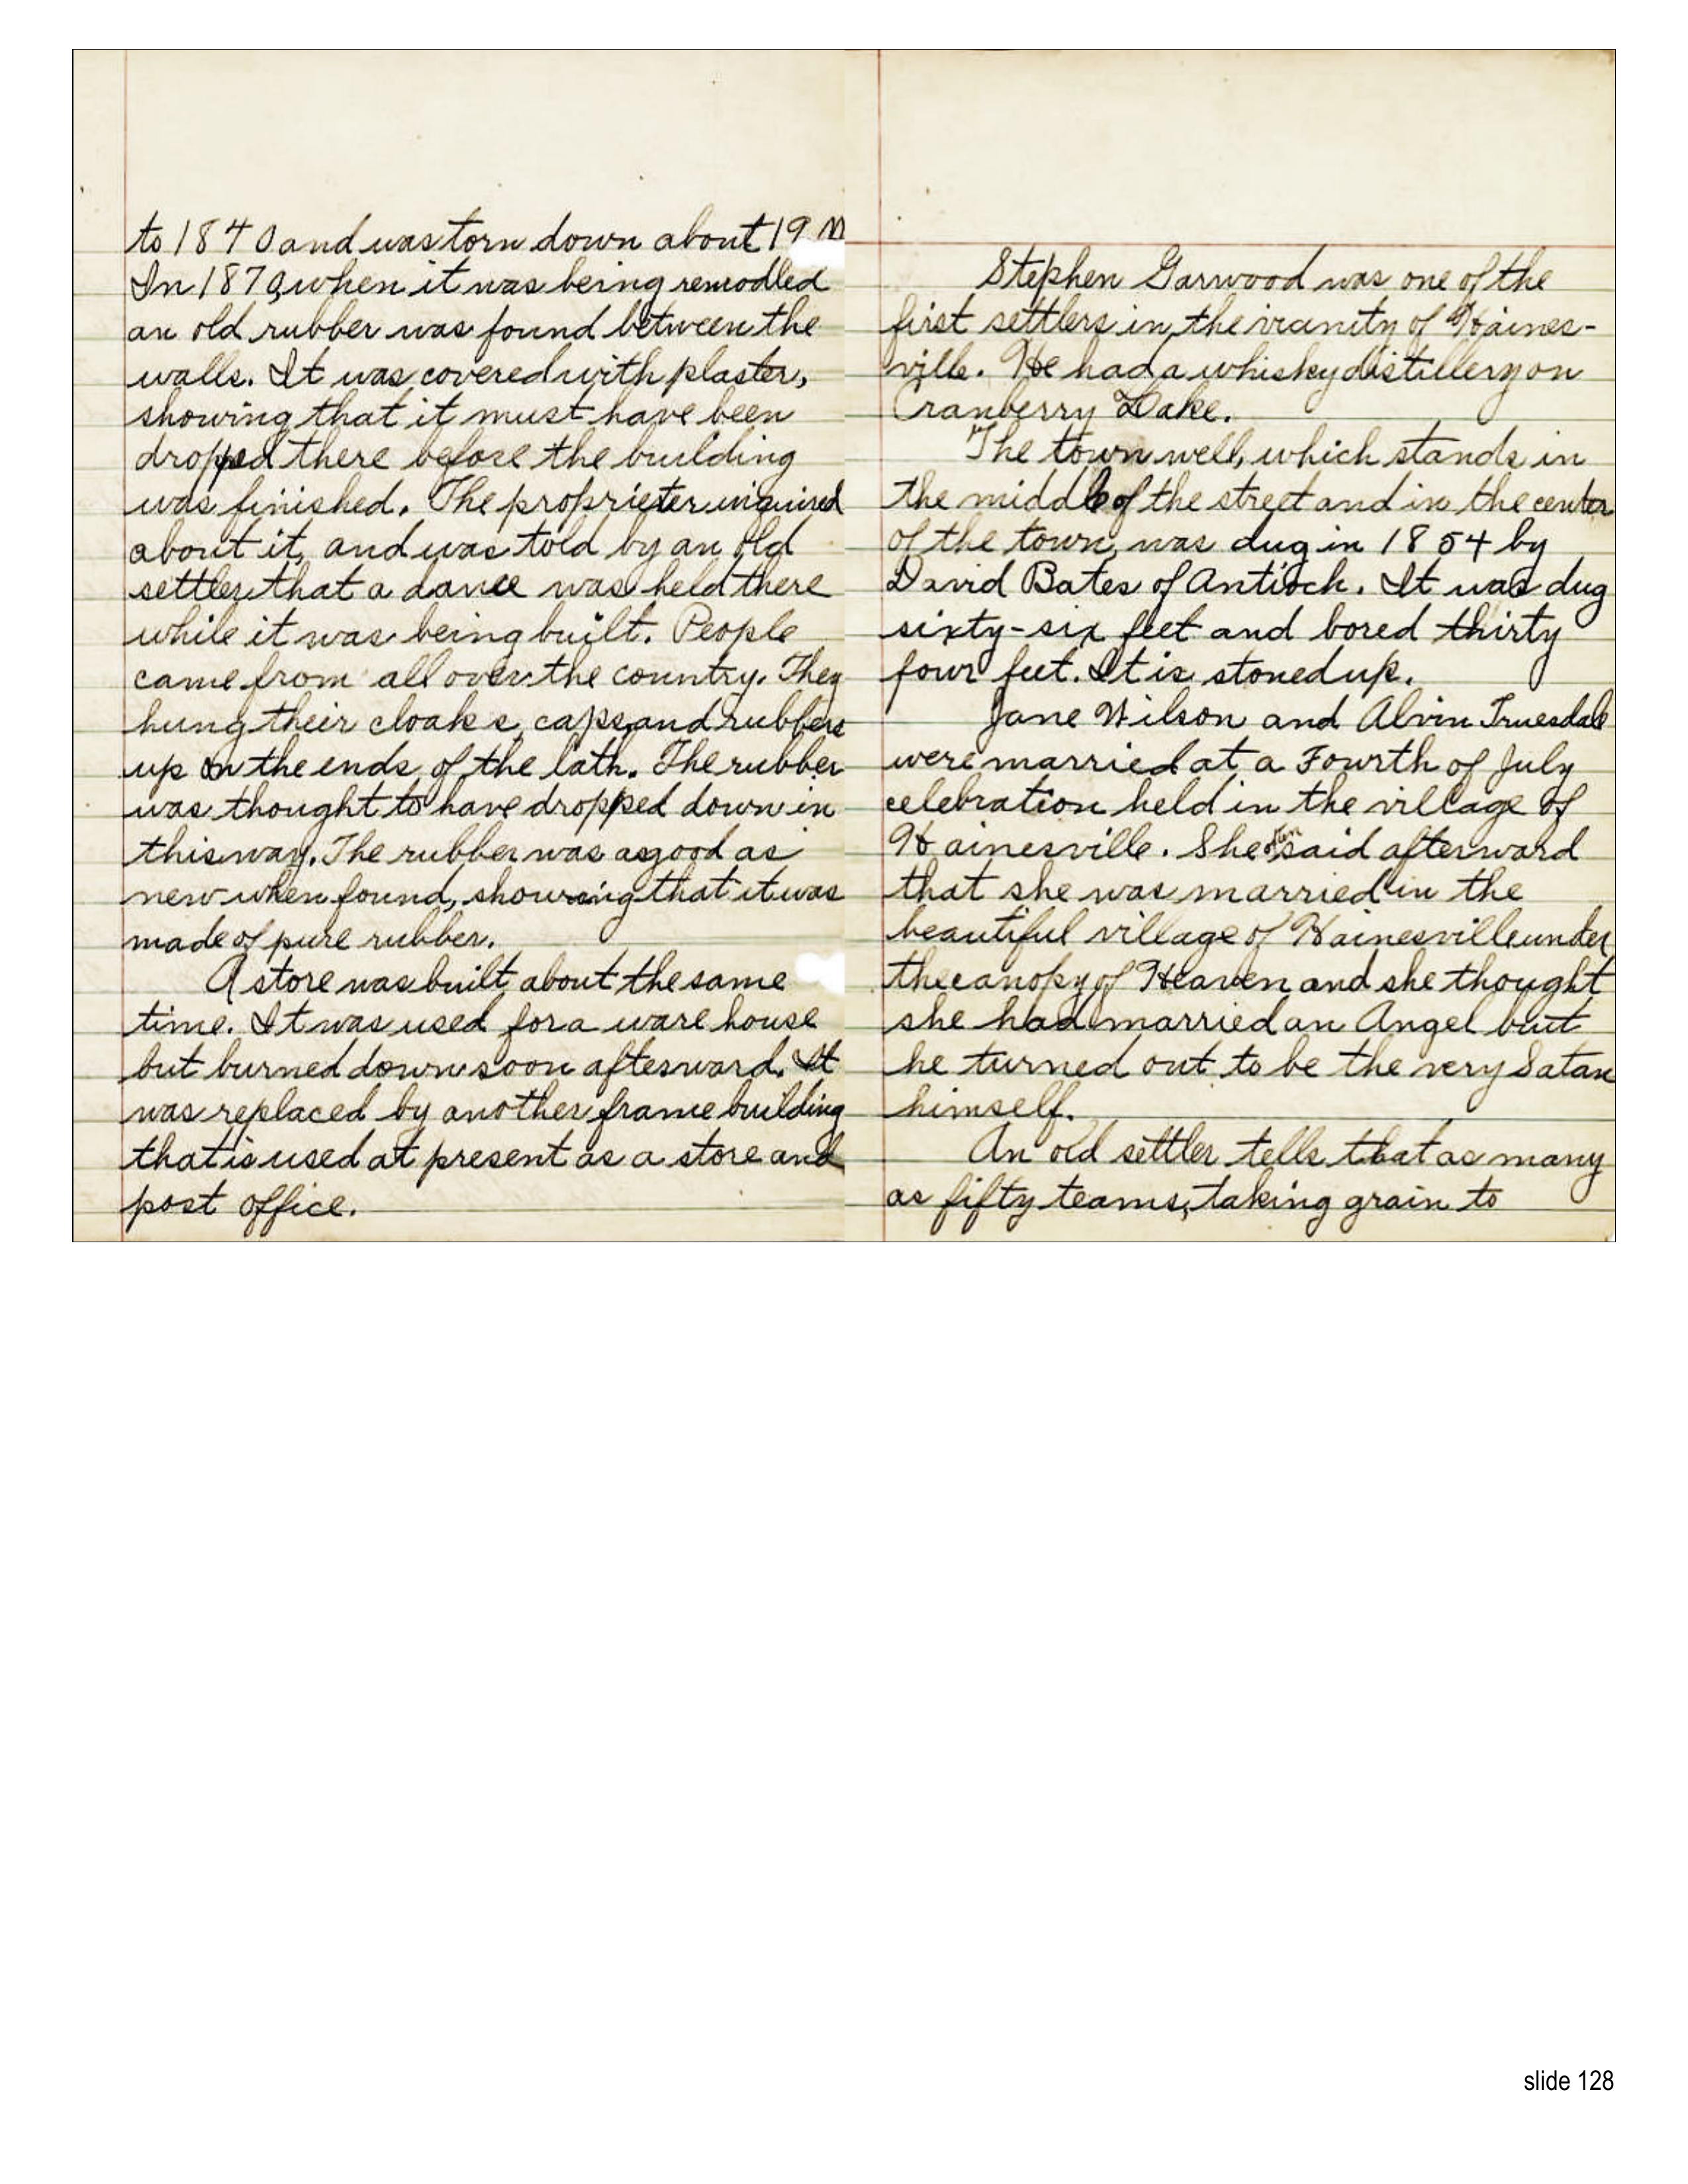 to 1840 and was torn down about 19
In 1870, when it was being remodled
an old rubber was found between the
walls. It was covered with plaster,
showing that it must have been
dropped there before the building
was finished. The proprieter inquired
about it, and was told by an old
settler that a dance was held there
while it was being built. People
came from all over the country. They
hung their cloaks, caps, and rubbers
up on the ends of the lath. The rubber
was thought to have dropped down in
this way. The rubber was as good as
new when found, showing that it was
made of pure rubber.
A store was built about the same
time. It was used for a ware house
but burned down soon afterward. It
was replaced by another frame building
that is used at present as a store and
post office.
Stephen Garwood was one of the
first settlers in the vicanity of Haines-
ville. He had a whisky distillery on
Cranberry Lake.
The town well, which stands in
the middle of the street and in the center
of the town, was dug in 1854 by
David Bates of Antioch. It was dug
sixty-six feet and bored thirty
four feet. It is stoned up.
Jane Wilson and Alvin Truesdale
were married at a Fourth of July
celebration held in the village of
Hainesville. She often said afterward
that she was married in the
beautiful village of Hainesville under
the canopy of Heaven and she thought
she had married an Angel but
he turned out to be the very Satan
himself.
An old settler tells that as many
as fifty teams, taking grain to
slide 128